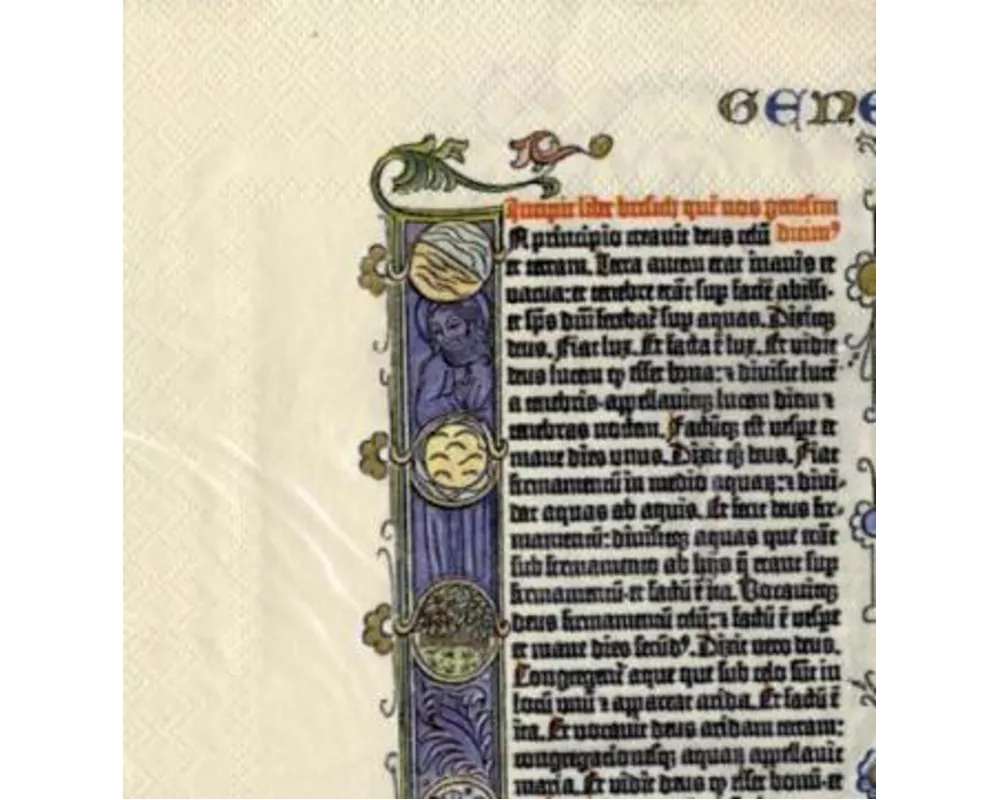 GENE
Incipit liber bresith quē nos genesim
dicim⁹
A principio creavit deus celū
et terram. Terra autem erat inanis et
vacua: et tenebre erāt sup faciē abissi·
et sp̄s dn̄i ferebat̄ sup aquas. Dixitqꝫ
deus. Fiat lux. Et facta ē lux. Et vidit
deus lucem ꝙ esset bona: ⁊ divisit lucē
a tenebris· appellavitqꝫ lucem diem ⁊
tenebras noctem. Factūqꝫ est vespe et
mane dies unus. Dixit qꝫ deus. Fiat
firmamentū in medio aquaꝝ: ⁊ divi-
dat aquas ab aquis. Et fecit deus fir-
mamentū: divisitqꝫ aquas que erāt
sub firmamento ab hijs q̄ erant sup
firmamentū· et factū ē ita. Vocavitqꝫ
deus firmamentū celū: ⁊ factū ē vespe
et mane dies secūd⁹. Dixit vero deus.
Congregent̄ aque que sub celo sūt in
locū unū ⁊ appareat arida. Et factū ē
ita. Et vocavit deus aridam terram:
congregacionesqꝫ aquaꝝ appellavit
maria. Et vidit deus ꝙ esset bonū· et